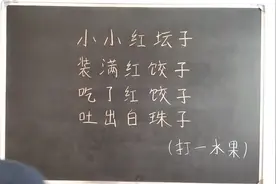 小小红坛子
装满红饺子
吃了红饺子
吐出白珠子
(打一水果)